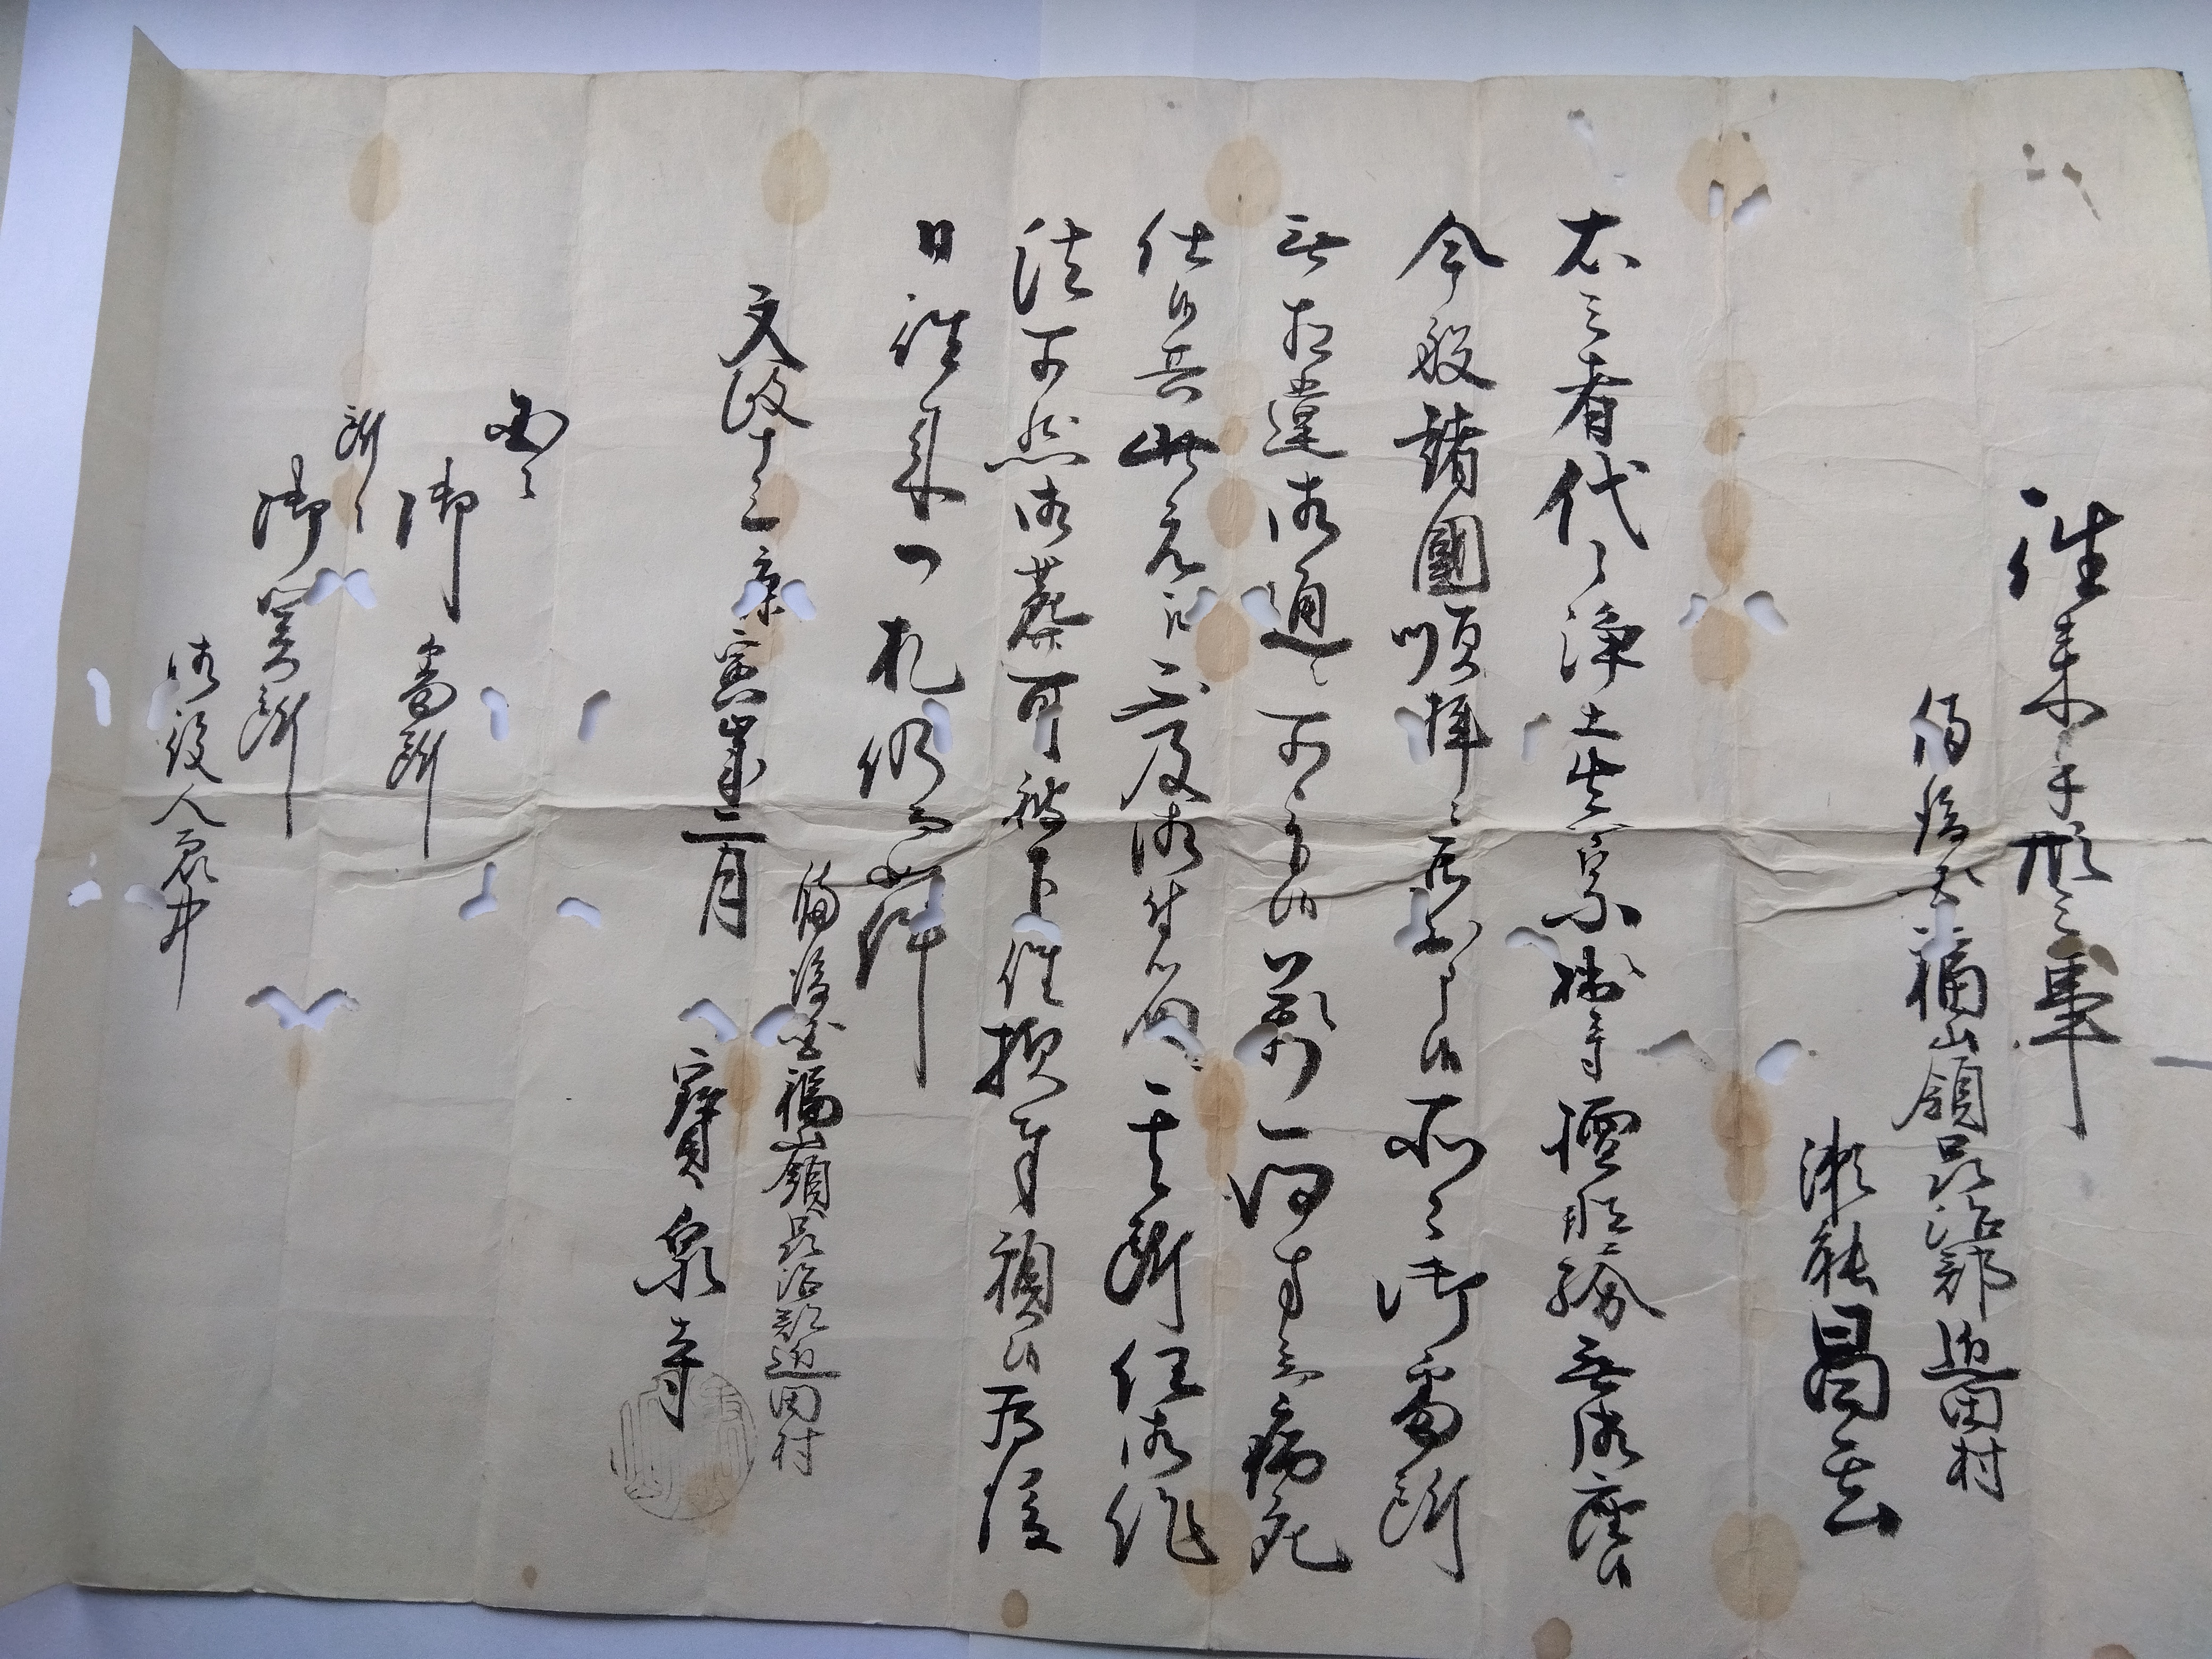 往来手形之事
備後国福山領品治郡近田村
瀬能昌玄
右之者代々浄土真宗拙寺檀那紛無御座候
今般諸国順拝ニ罷出申候所々御番所
無相違御通シ可被下候万一何方ニ而病死
仕候共此元江不及御付届其所任御作
法可然御葬可被下候拠年願候為後
日往来一札仍而如件
文政十三庚寅歳二月
備後国福山領品治郡近田村
寳泉寺
国々
御番所
所々
御関所
御役人衆中